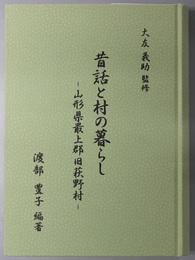 大友義助 監修
昔話と村の暮らし
-山形県最上郡旧萩野村-
渡部豊子 編著